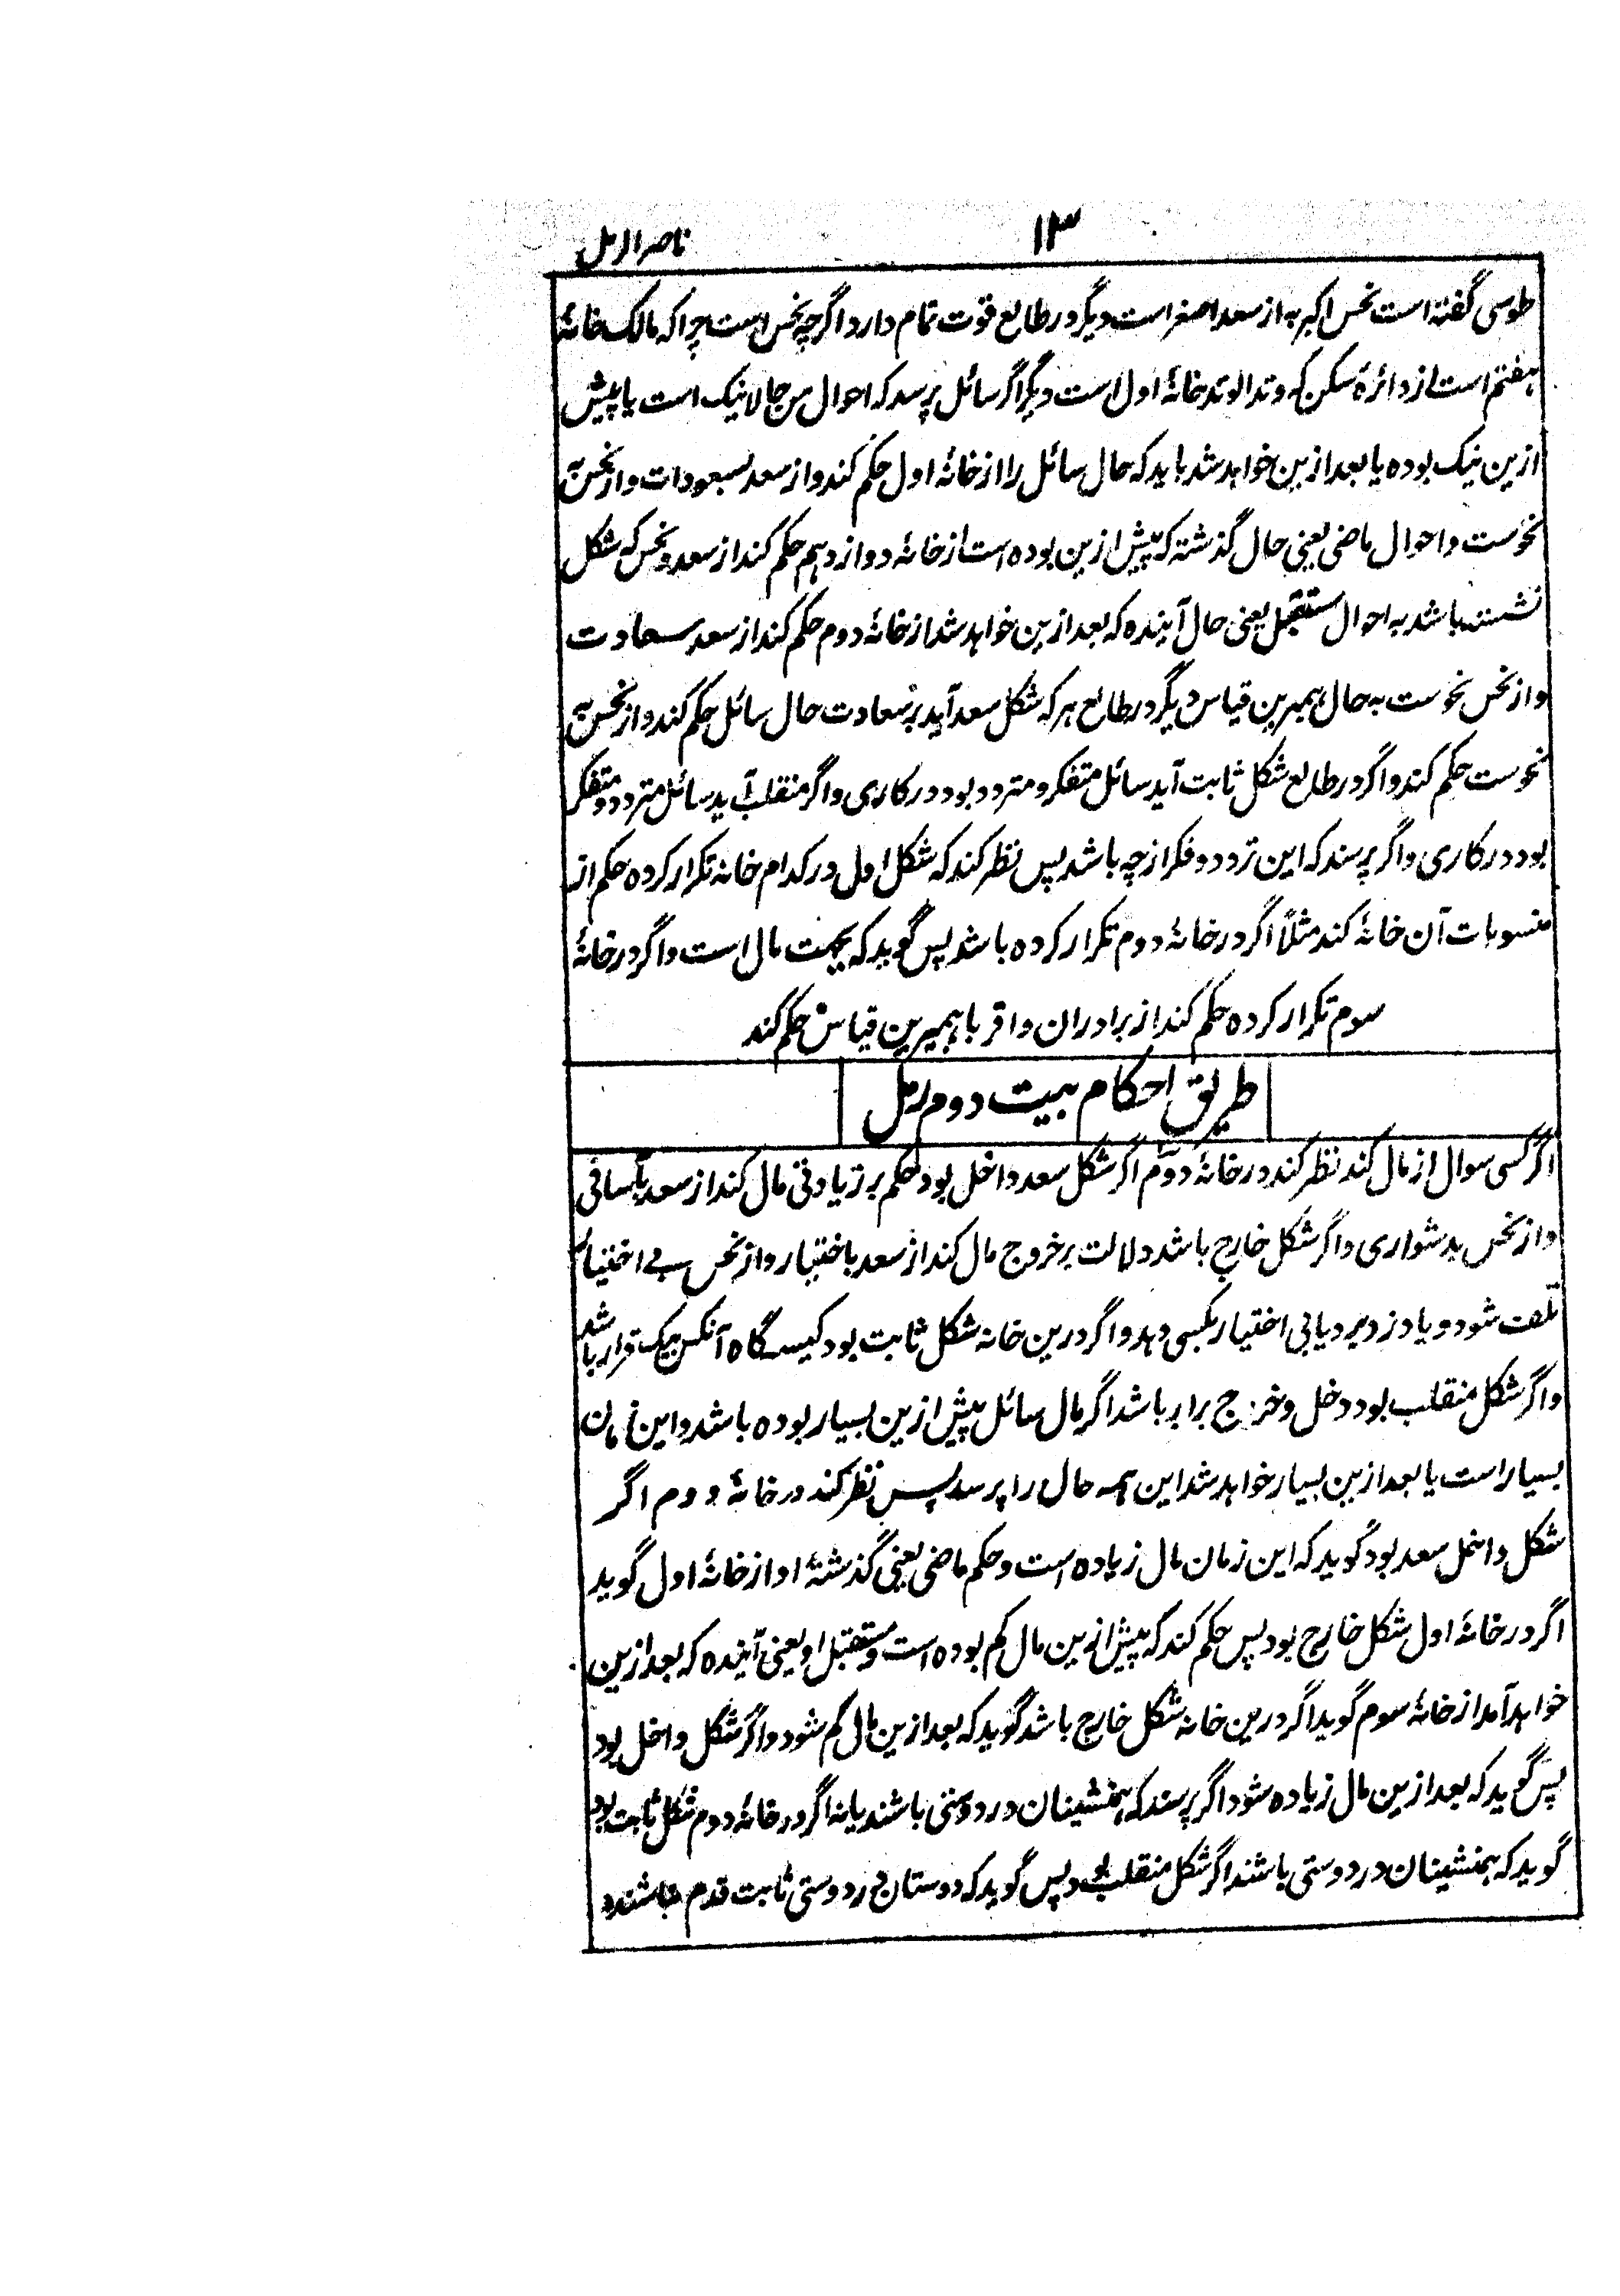 ۱۳
ناصر الرمل
طوسی گفته است نحس اکبر به از سعد اصغر است دیگر در طالع قوت تمام دارد اگرچه نحس است چرا که مالک خانهٔ
هفتم است از دائرهٔ سکن که وتد الوتد خانهٔ اول است دیگر اگر سائل پرسد که احوال من حالا نیک است یا پیش
ازین نیک بوده یا بعد ازین خواهد شد باید که حال سائل را از خانهٔ اول حکم کند و از سعد بسعودات و از نحس به
نحوست و احوال ماضی یعنی حال گذشته که پیش ازین بوده است از خانهٔ دوازدهم حکم کند از سعد و نحس که شکل
نشسته باشد به احوال مستقبل یعنی حال آینده که بعد ازین خواهد شد از خانهٔ دوم حکم کند از سعد سعادت
و از نحس نحوست به حال همیرین قیاس دیگر در طالع هر که شکل سعد آید بر سعادت حال سائل حکم کند و از نحس به
نحوست حکم کند و اگر در طالع شکل ثابت آید سائل متفکر و متردد بود در کاری و اگر منقلب آید سائل متردد و متفکر
بود در کاری و اگر پرسند که این تردد و فکر از چه باشد پس نظر کند که شکل اول در کدام خانه تکرار کرده حکم از
منسوبات آن خانهٔ کند مثلاً اگر در خانهٔ دوم تکرار کرده باشد پس گوید که بجهت مال است و اگر در خانهٔ
سوم تکرار کرده حکم کند از برادران و اقربا همیرین قیاس حکم کند
طریق احکام بیت دوم رمل
اگر کسی سوال از مال کند نظر کند در خانهٔ دوم اگر شکل سعد داخل بود حکم بر زیادتی مال کند از سعد بآسانی
و از نحس بدشواری و اگر شکل خارج باشد دلالت بر خروج مال کند از سعد باختیار و از نحس بے اختیار
تلف شود و یا دزد برد یا بی اختیار بکسی دهد و اگر درین خانه شکل ثابت بود کیسه گاه آنکس بیک قرار باشد
و اگر شکل منقلب بود دخل و خرج برابر باشد اگر مال سائل پیش ازین بسیار بوده باشد و این زمان
بسیار است یا بعد ازین بسیار خواهد شد این همه حال را پرسد پس نظر کند در خانهٔ دوم اگر
شکل داخل سعد بود گوید که این زمان مال زیاده است و حکم ماضی یعنی گذشتهٔ او از خانهٔ اول گوید
اگر در خانهٔ اول شکل خارج بود پس حکم کند که پیش ازین مال کم بوده است و مستقبل او یعنی آینده که بعد ازین
خواهد آمد از خانهٔ سوم گوید اگر درین خانه شکل خارج باشد گوید که بعد ازین مال کم شود و اگر شکل داخل بود
پس گوید که بعد ازین مال زیاده شود اگر پرسند که همنشینان در دوستی باشند یا نه اگر در خانهٔ دوم شکل ثابت بود
گوید که همنشینان در دوستی باشند اگر شکل منقلب بود پس گوید که دوستان در دوستی ثابت قدم نباشند